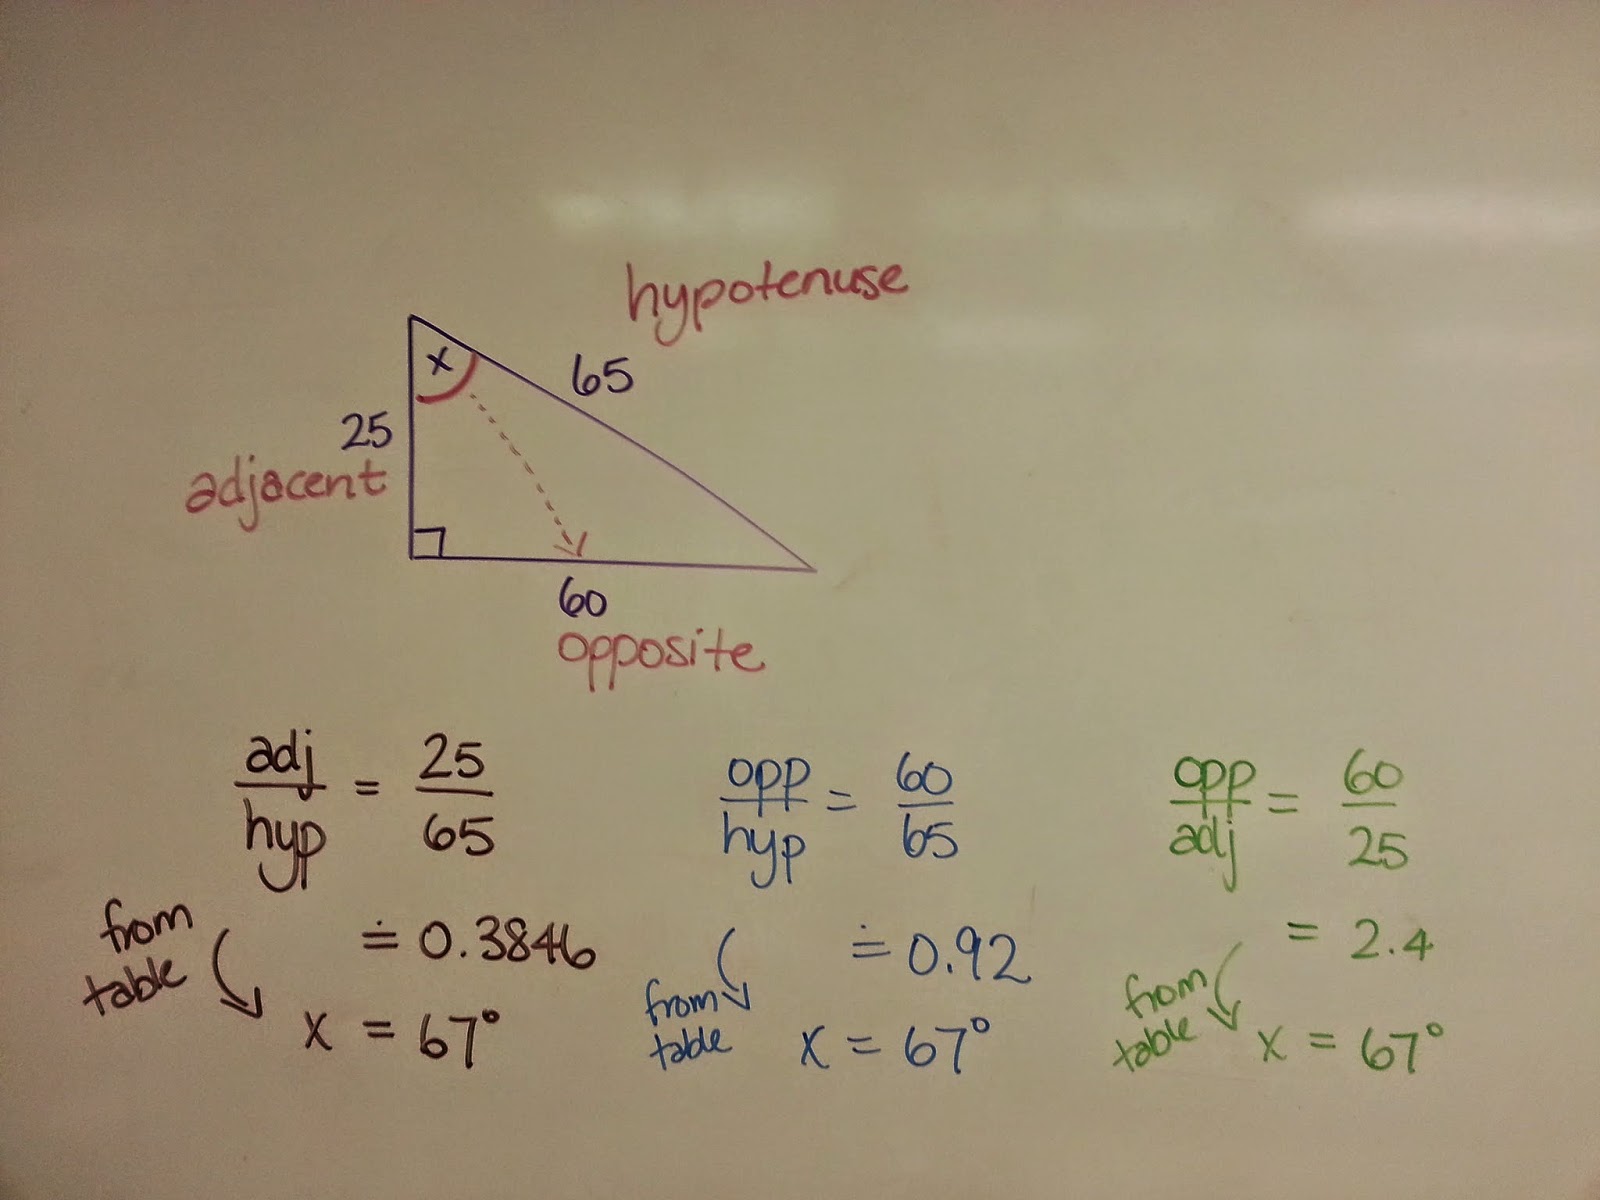 hypotenuse
x
65
25
adjacent
60
opposite
adj/hyp = 25/65
from table
≐ 0.3846
x = 67°
opp/hyp = 60/65
from table
≐ 0.92
x = 67°
opp/adj = 60/25
from table
= 2.4
x = 67°